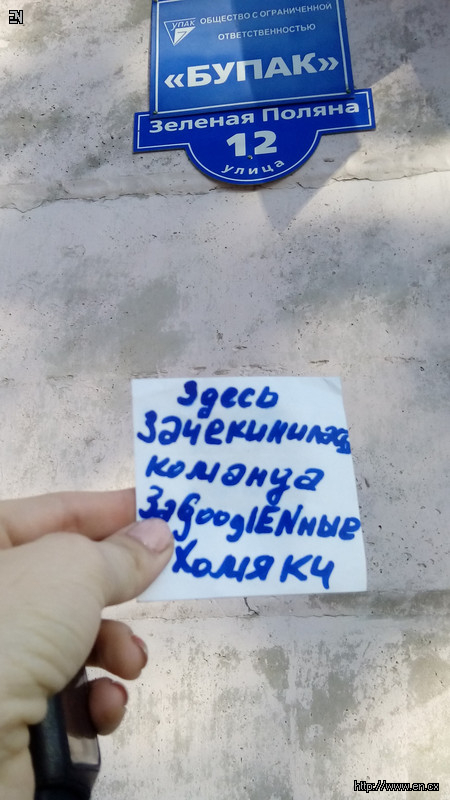 EN
УПАК
ОБЩЕСТВО С ОГРАНИЧЕННОЙ
ОТВЕТСТВЕННОСТЬЮ
«БУПАК»
Зеленая Поляна
12
улица
Здесь
Зачекинилась
команда
ЗаGooglENные
Хомяки
http://www.en.cx